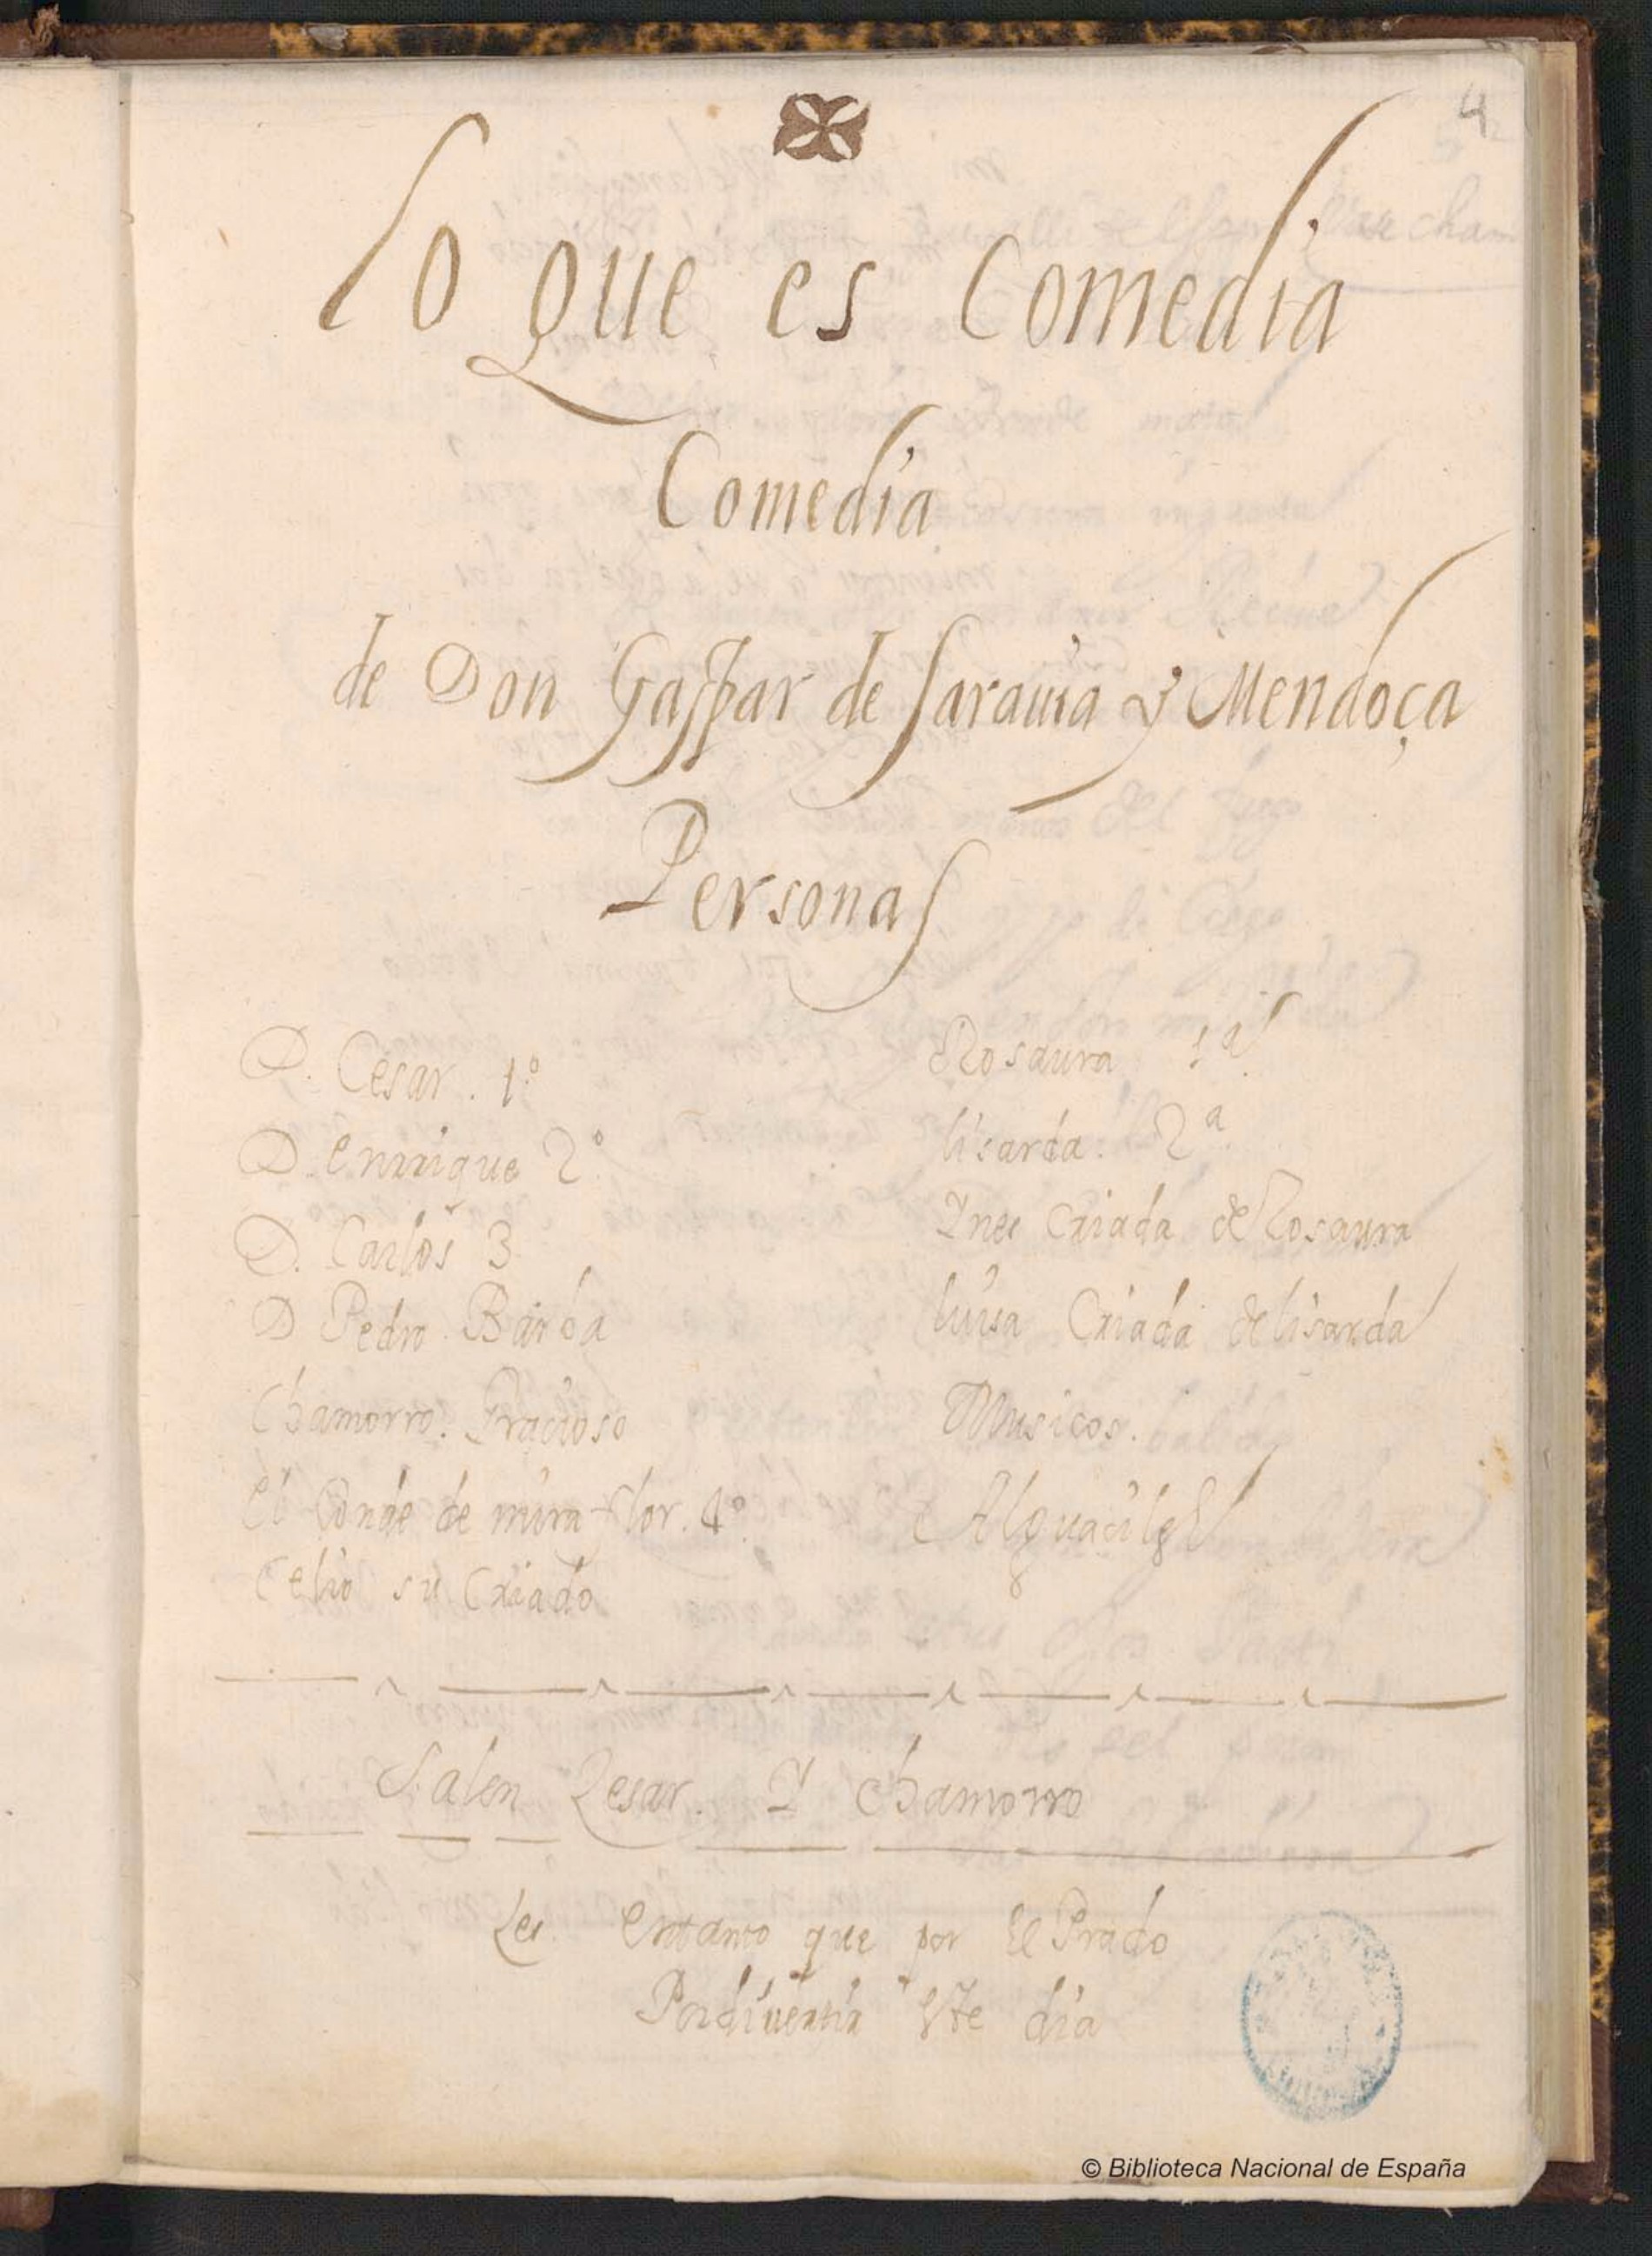 4
Lo que es Comedia
Comedia
de Don Gaspar de Sarauia y Mendoça
Personas
D. Cesar. 1º
D. enrrique 2º
D. Carlos 3
D Pedro Barba
Chamorro. Gracioso
El Conde de mira flor. 4º
Celio su Criado
Rosaura 1ª
lisarda. 2ª
Ynes Criada de Rosaura
luisa Criada de lisarda
Musicos.
Alguaciles
Salen Zesar. Y chamorro
Zes. entanto que por El Prado
Pordiuertir Este dia
© Biblioteca Nacional de España